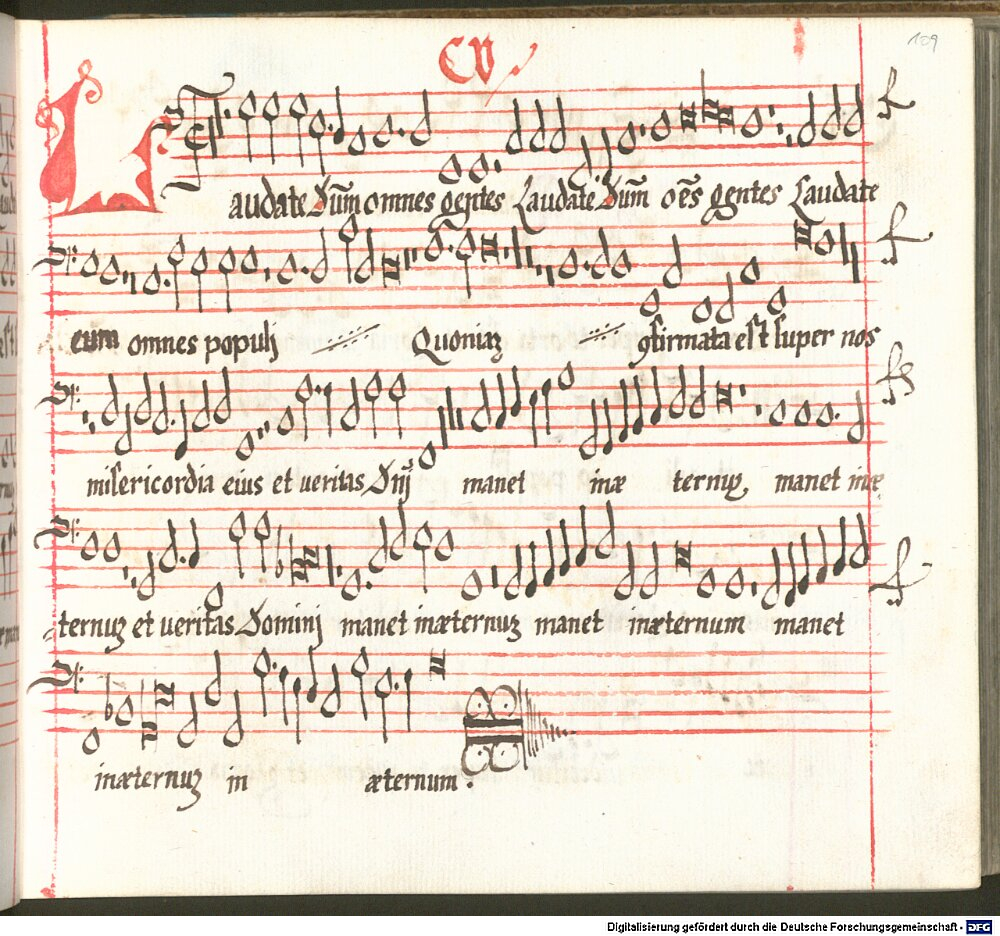 CV
109
Laudate Dn̄m omnes gentes Laudate Dn̄m oēs gentes Laudate
eum omnes populj Quoniaʒ ꝯfirmata est super nos
misericordia eius et ueritas Dnj manet inæ ternuʒ, manet inæ
ternuʒ et ueritas Dominj manet inæternuʒ manet inæternum manet
inæternuʒ in æternum.
Digitalisierung gefördert durch die Deutsche Forschungsgemeinschaft - DFG